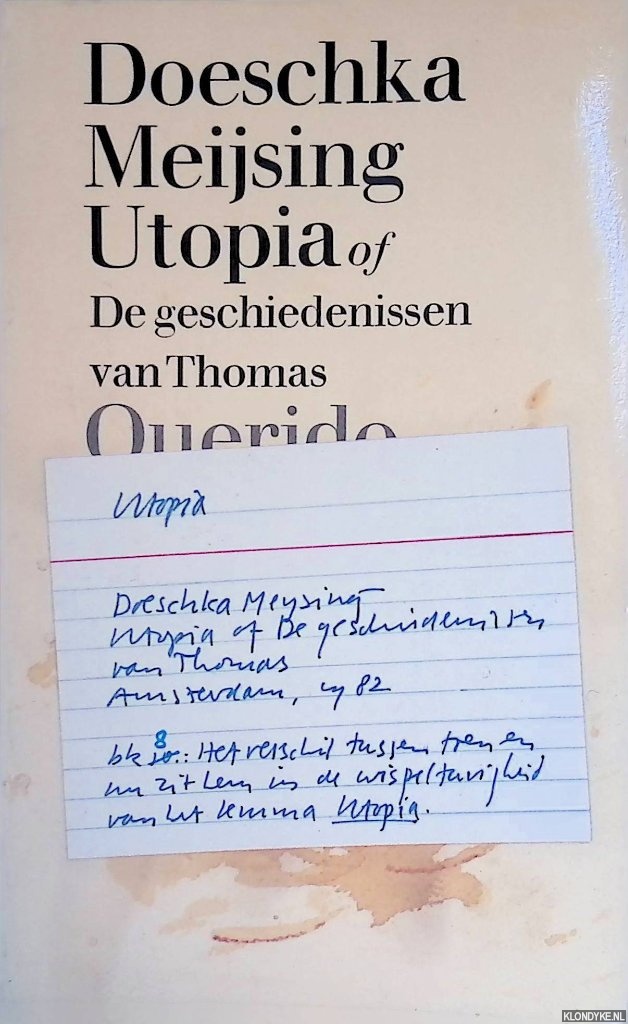 Doeschka
Meijsing
Utopia of
De geschiedenissen
van Thomas
Querido
Utopia
Doeschka Meijsing
Utopia of De geschiedenissen
van Thomas
Amsterdam, 1982
blz 8: Het verschil tussen toen en
nu zit hem in de wispelturigheid
van het lemma Utopia.
KLONDYKE.NL